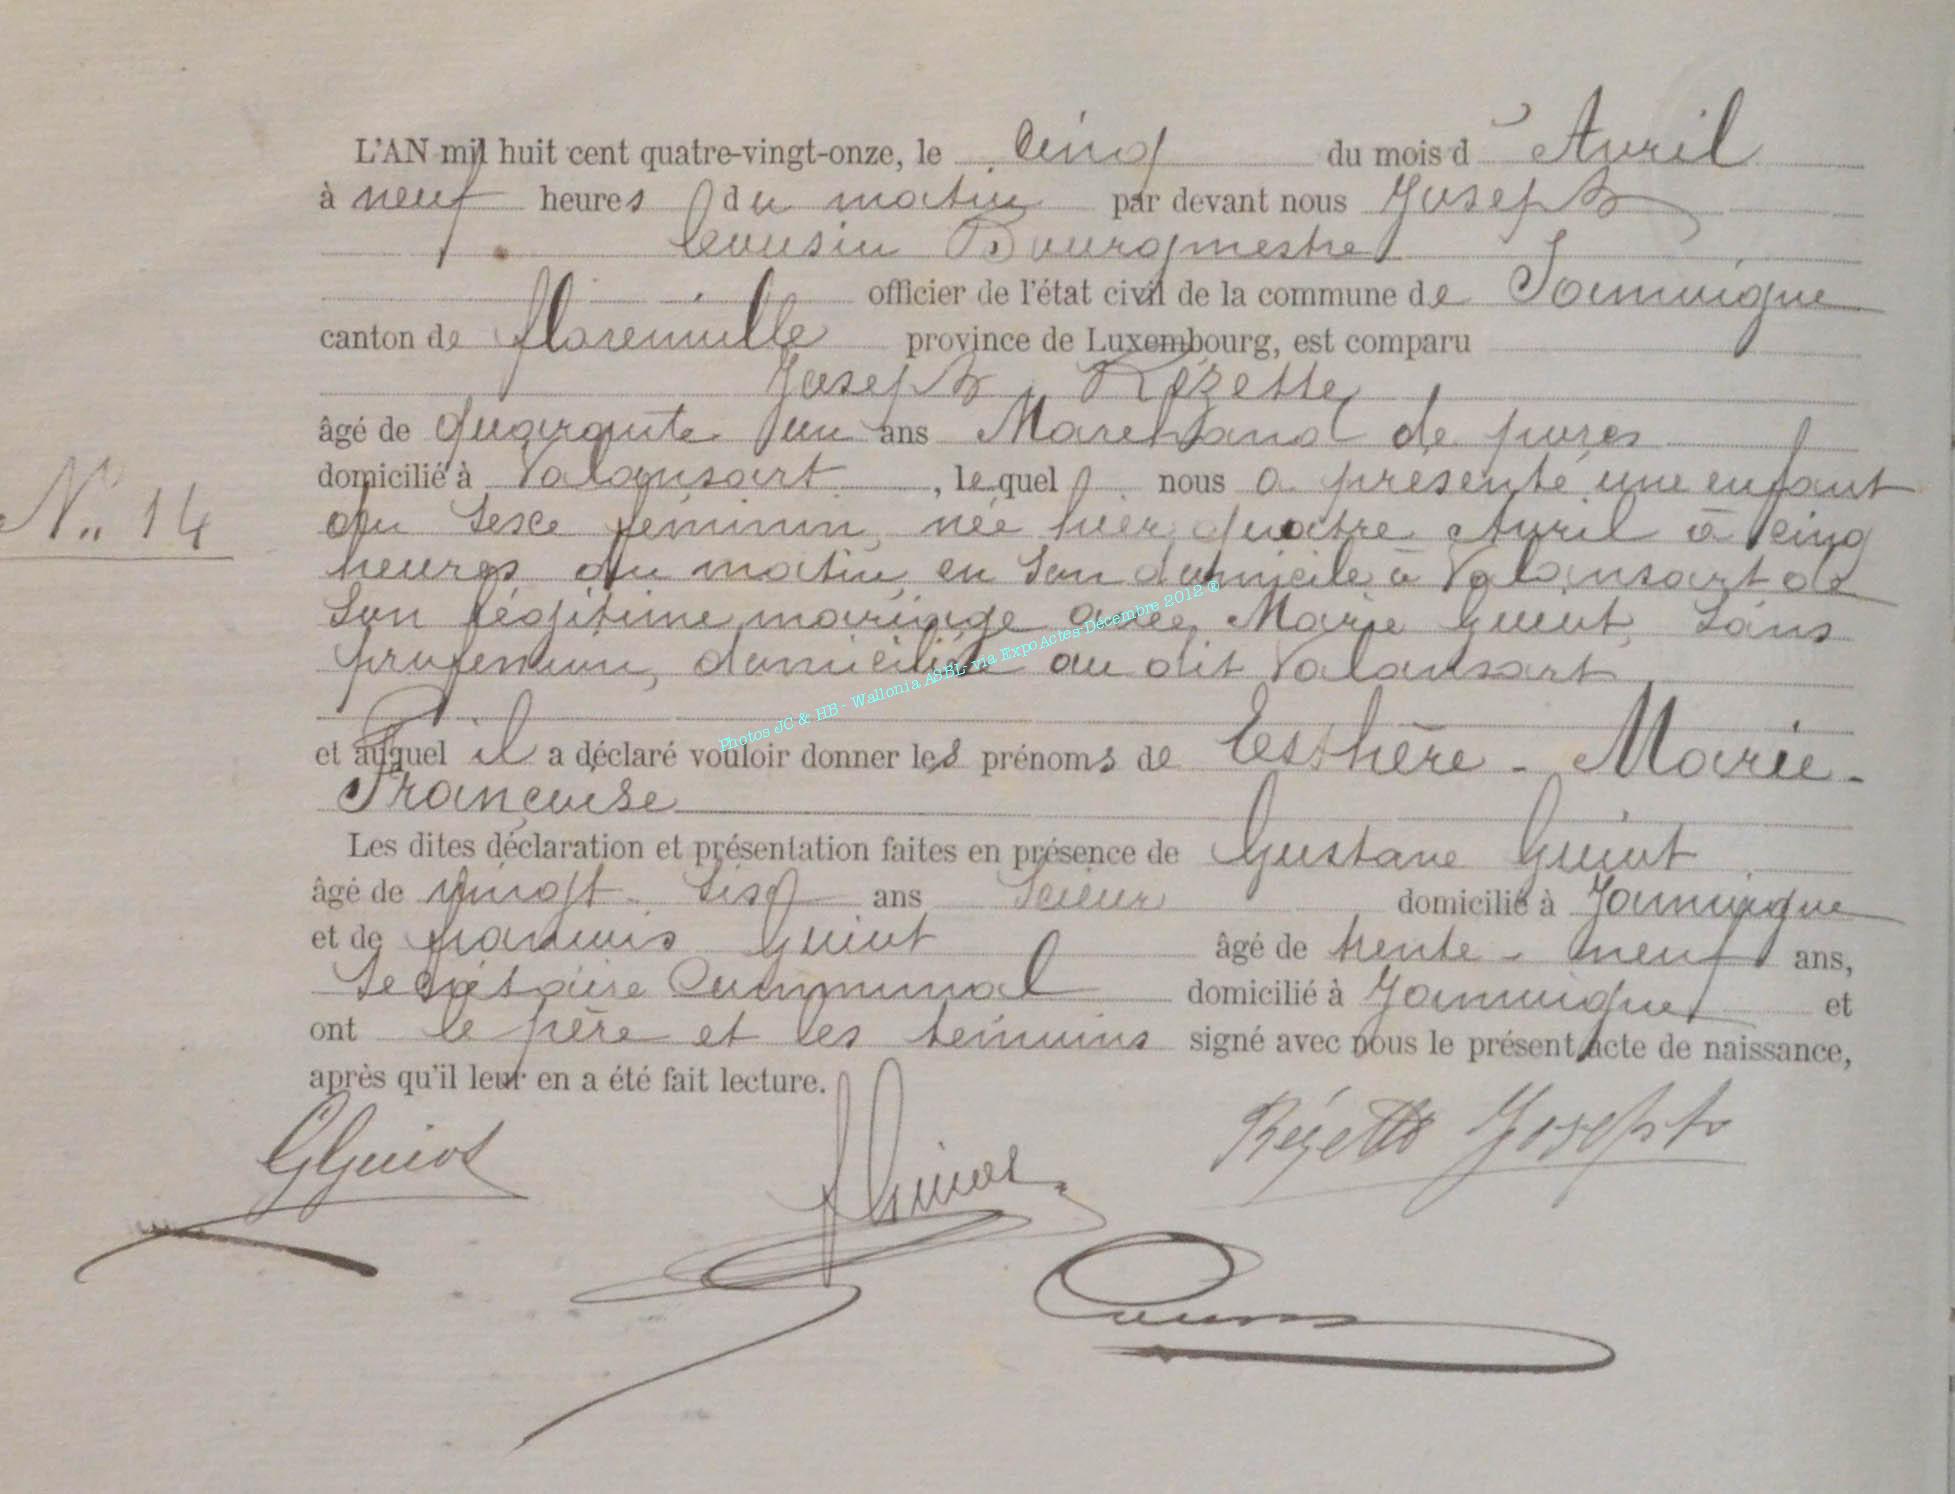 L'AN mil huit cent quatre-vingt-onze, le cinq du mois d'Avril
à neuf heures du matin par devant nous Joseph
Cousin Bourgmestre
officier de l'état civil de la commune de Jamoigne
canton de florenville province de Luxembourg, est comparu
Joseph Rézette
âgé de quarante un ans Marchand de porcs
domicilié à Valansart, lequel nous a présenté une enfant
N° 14
du sexe féminin, née hier quatre Avril à cinq
heures du matin en son domicile à Valansart de
son légitime mariage avec Marie Guiot sans
profession, domiciliée au dit Valansart
et auquel il a déclaré vouloir donner les prénoms de Esthère - Marie -
Françoise
Les dites déclaration et présentation faites en présence de Gustave Guiot
âgé de vingt-sise ans Scieur domicilié à Jamoigne
et de françois Guiot âgé de trente-neuf ans,
Secrétaire Communal domicilié à Jamoigne et
ont le père et les témoins signé avec nous le présent acte de naissance,
après qu'il leur en a été fait lecture.
GGuiot
FGuiot
Rézette Joseph
Cousin
Photos JC & HB - Wallonia ASBL- via ExpoActes-Décembre 2012 ®